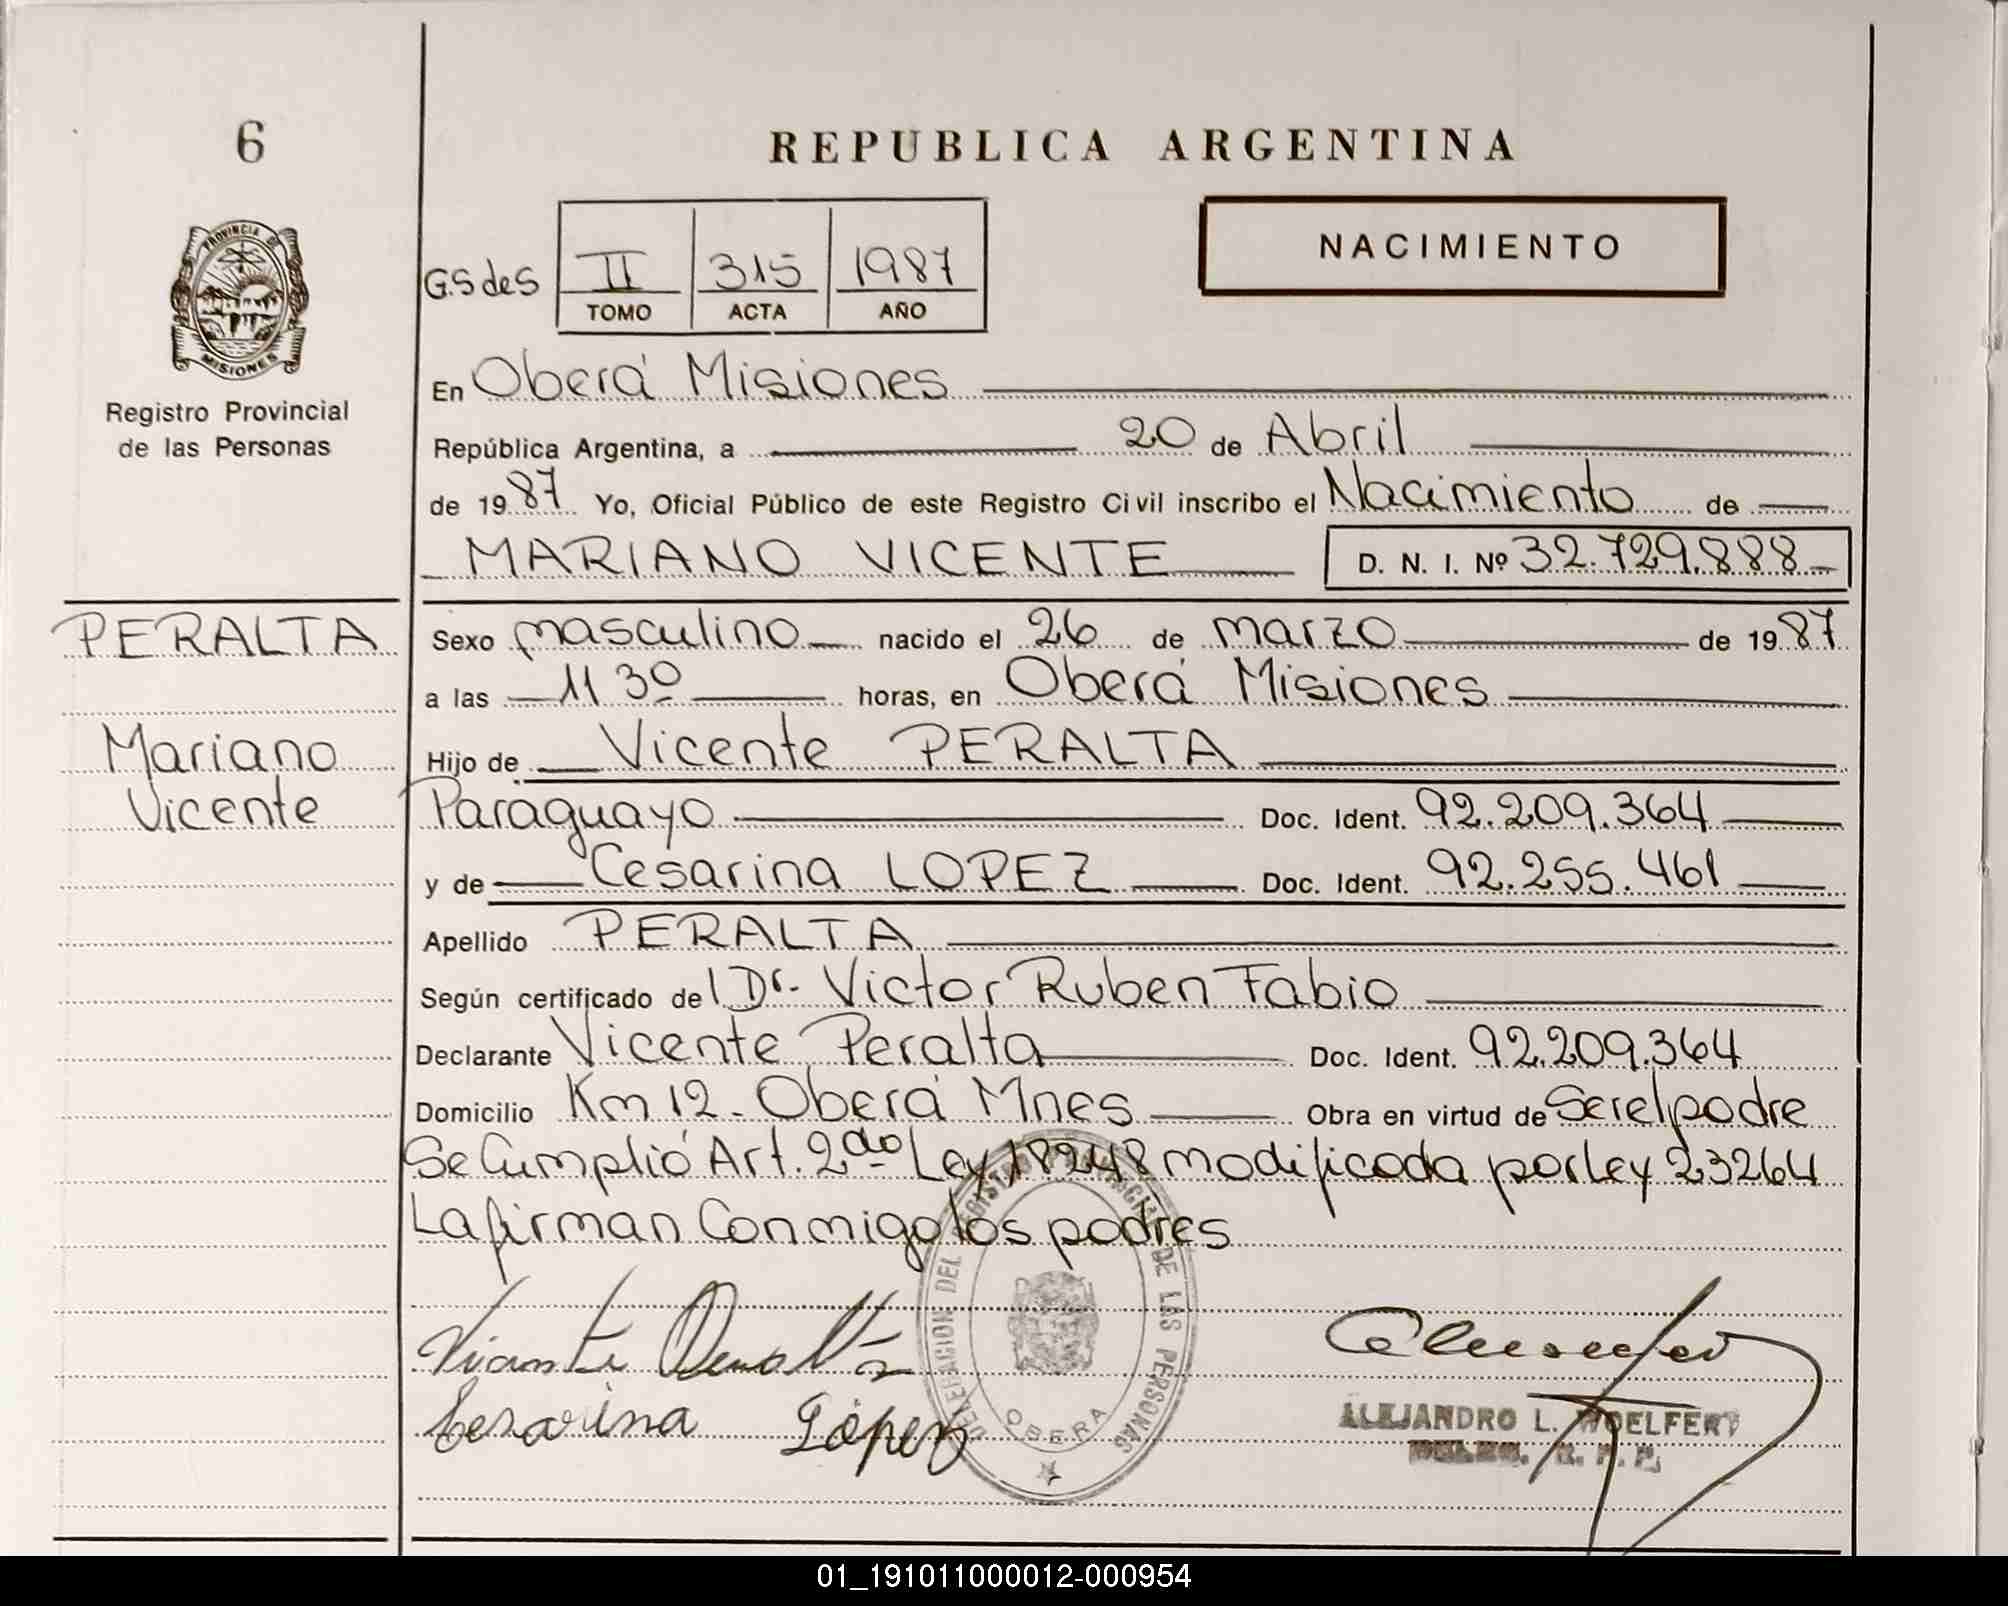 6
REPUBLICA ARGENTINA
PROVINCIA DE
MISIONES
Registro Provincial
de las Personas
G.S de S II 315 1987
TOMO ACTA AÑO
NACIMIENTO
En Oberá Misiones
República Argentina, a 20 de Abril
de 1987 Yo, Oficial Público de este Registro Civil inscribo el Nacimiento de
MARIANO VICENTE D. N. I. Nº 32.729.888
PERALTA
Mariano
Vicente
Sexo masculino nacido el 26 de marzo de 1987
a las 11 30 horas, en Oberá Misiones
Hijo de Vicente PERALTA
Paraguayo Doc. Ident. 92.209.364
y de Cesarina LOPEZ Doc. Ident. 92.255.461
Apellido PERALTA
Según certificado del Dr. Victor Ruben Fabio
Declarante Vicente Peralta Doc. Ident. 92.209.364
Domicilio Km 12 - Oberá Mnes Obra en virtud de Ser el padre
Se Cumplió Art. 2do Ley 18248 modificada por ley 23264
La firman Conmigo los padres
DELEGACION DEL REGISTRO PROVINCIAL DE LAS PERSONAS
OBERA
Vicente Peralta
Cesarina López
ALEJANDRO L. WOELFERT
R. P. P.
01_191011000012-000954